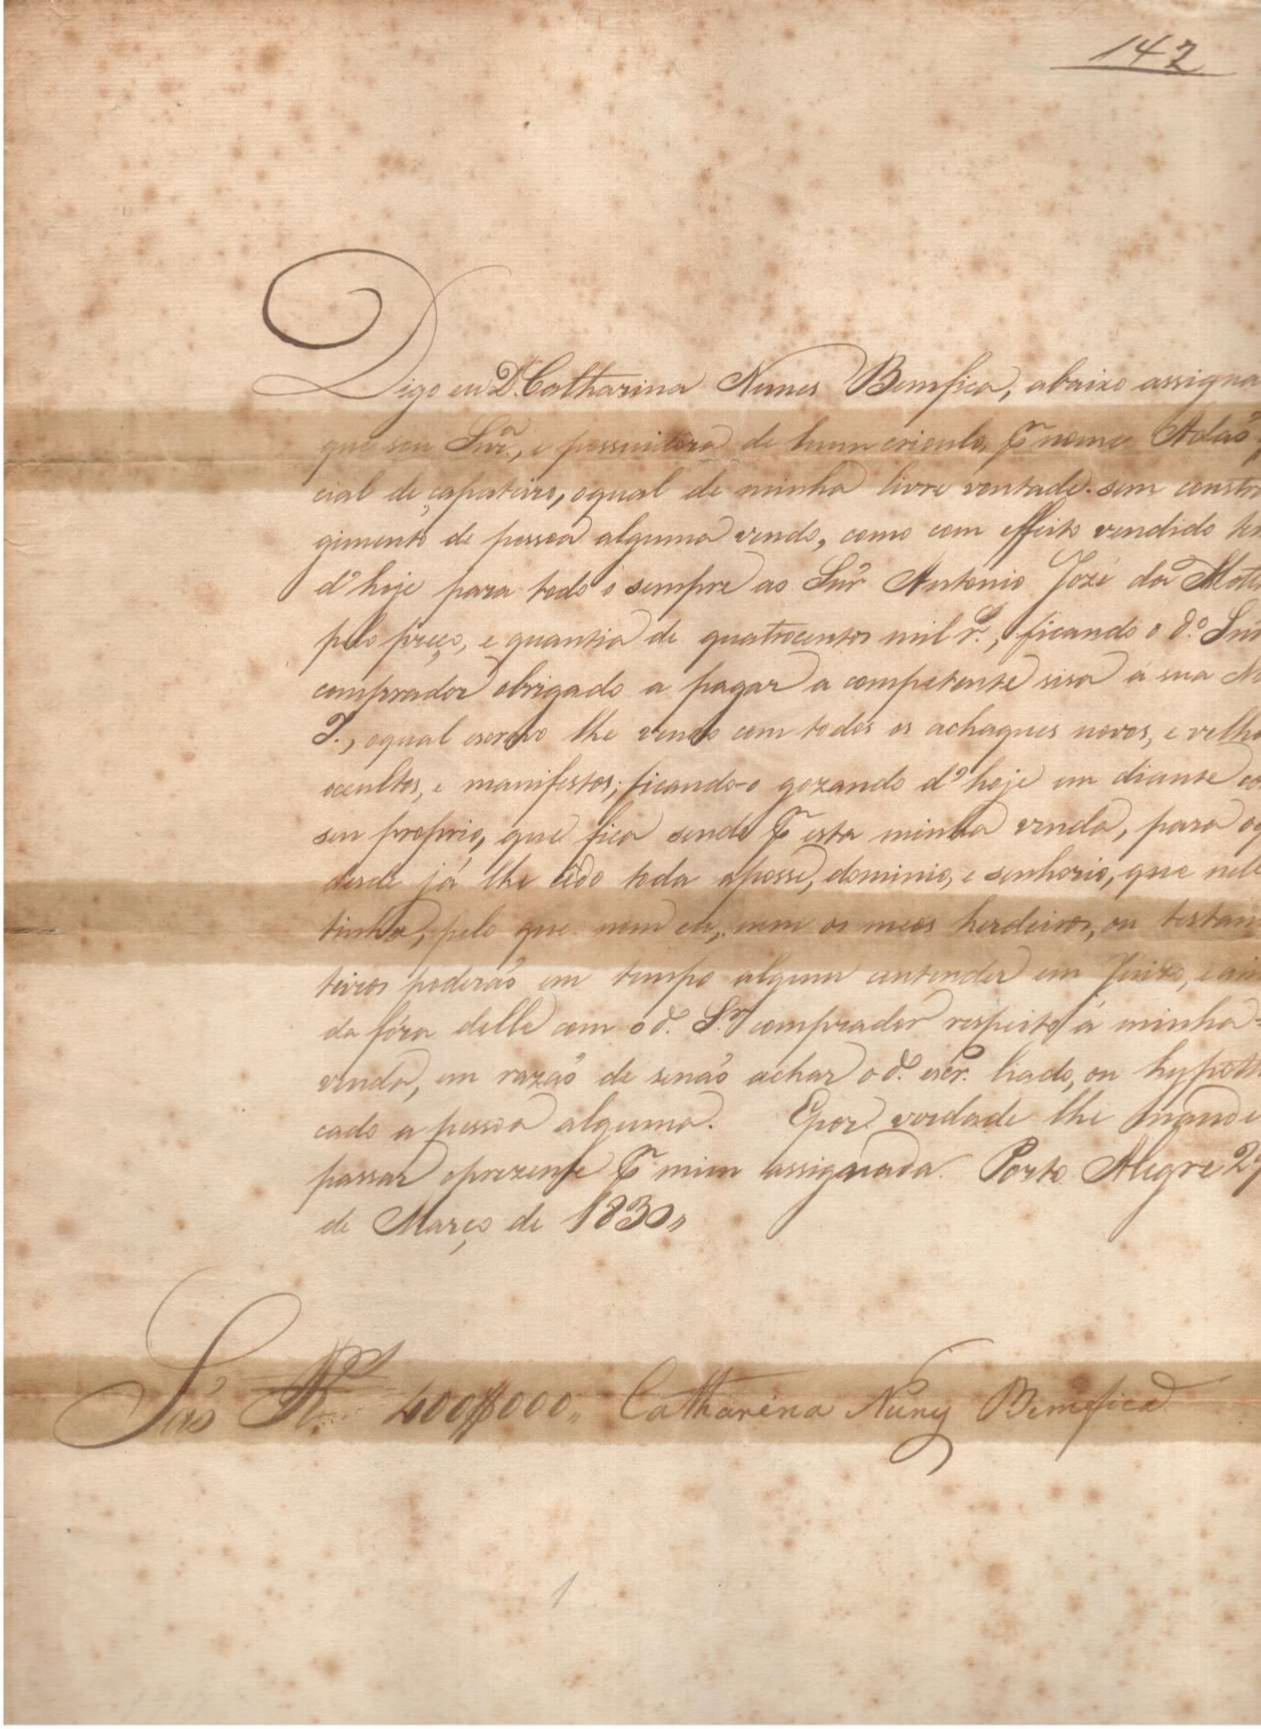 142
Digo eu D. Catharina Nunes Bemfica, abaixo assigna
que sou Snrã., e possuidora de hum crioulo, Pr nome Adaõ,
cial de çapateiro, oqual de minha livre vontade sem constr
gimento de pessoa alguma vendo, como com effeito vendido ten
d'hoje para todo o sempre ao Snr̃ Antonio Jozé da Motta
pelo preço, e quantia de quatrocentos mil rs., ficando o do. Snr
comprador obrigado a pagar a competente siza á sua
I., oqual escravo lhe vendo com todos os achaques novos, e velho
occultos, e manifestos; ficando-o gozando d'hoje em diante co
seu proprio, que fica sendo Pr esta minha venda, para oq
desde já lhe cedo toda aposse, dominio, e senhorio, que nelle
tinha, pelo que nem eu, nem os meos herdeiros, ou testam
teiros poderaõ em tempo algum entender em Juizo, e ain
da fóra delle com o do. Sr. comprador respeito á minha=
venda, em razaõ de senaõ achar o do. escro. liado, ou hypothe
cado a pessoa alguma. Epor verdade lhe mandei
passar oprezente Pr mim assignada. Porto Alegre 27
de Março de 1830,,
Saõ Rs. 400$000,, Catharina Nunes Bemfica
1